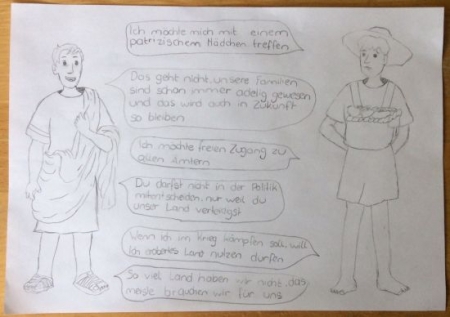 Ich möchte mich mit einem
patrizischem Mädchen treffen
Das geht nicht, unsere Familien
sind schon immer adelig gewesen
und das wird auch in Zukunft
so bleiben
Ich möchte freien Zugang zu
allen Ämtern
Du darfst nicht in der Politik
mitentscheiden, nur weil du
unser Land verteidigst
Wenn ich im Krieg kämpfen soll, will
ich erobertes Land nutzen dürfen
So viel Land haben wir nicht, das
meiste brauchen wir für uns